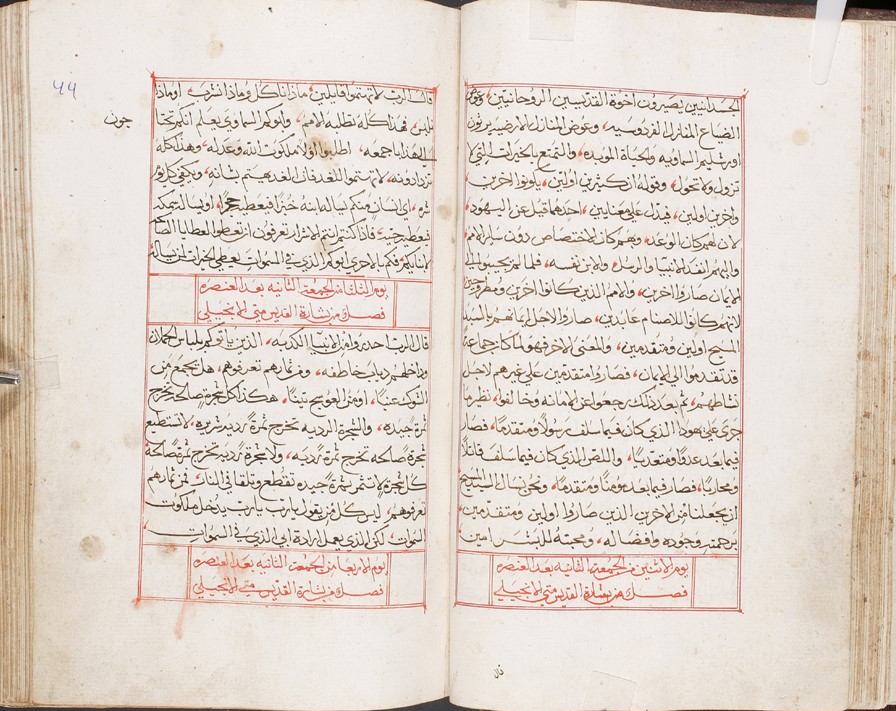 الجسدانيين يصيرون اخوة القديسين الروحانيين، وعوض
الضياع المنازل الفردوسيه، وعوض المنازل الارضيه يرثون
اورشليم السماويه والحياة الموبده، والتمتع بالخيرات التي لا
تزول ولا تحول، وقوله ان كثيرين اولين، يكونوا اخرين،
واخرين اولين، فيدل على معنايين، احدهما قيل عن اليهود،
لان لهم كان الوعد، وبهم كان الاختصاص دون ساير الامم
واليهم انفد الانبيا والرسل، ولابن نفسه، فلما لم يجيبوا الي
الايمان صاروا اخرين، والامم الذين كانوا اخرين ومفروحين
لانهم كانوا للاصنام عابدين، صاروا لاجل ايمانهم بالسيد
المسيح اولين ومتقدمين، والمعنى الاخر فهو لما كان جماعة
قد تقدموا الي الايمان، فصاروا متقدمين علي غيرهم لاجل
نشاطهم، ثم بعد ذلك رجعوا عن الامانه وخالفوا، نظير ما
جرى علي يهودا الذي كان فيما سلف رسولا ومتقدما، فصار
فيما بعد عدوا ومتعديا، واللص الذي كان فيما سلف قاتلا
ومحاربا، فصار فيما بعد مومنا ومتقدما، ونحن نسال السيد المسيح
ان يجعلنا من الاخرين الذين صاروا اولين ومتقدمين،
برحمته وجوده وافضاله، ومحبته للبشر امين
يوم الاثنين من الجمعة الثانيه بعد العنصره
فصل من بشارة القديس متي الانجيلي
قال
٤٤
جون
قال الرب لا تهتموا قايلين، ماذا ناكل وماذا نشرب، او ماذا
نلبس، فهذا كله تطلبه الامم، وابوكم السماوي يعلم انكم تحتا
الي هذا باجمعه، اطلبوا اولا ملكوت الله وعدله، وهذا كله
تزدادونه، لا تهتموا للغد فان الغد يهتم بشانه، ويكفي كل يوم
شره، اي انسان منكم يساله ابنه خبزا فيعطيه حجرا، او يساله سمكه
فيعطيه حيه، فاذا كنتم انتم الاشرار تعرفون ان تعطوا العطايا الصالحه
لابنايكم، فكم بالاحرى ابوكم الذي في السموات يعطي الخيرات لمن يساله
يوم الثلثا من الجمعة الثانيه بعد العنصره
فصل من بشارة القديس متي الانجيلي
قال الرب احدروا من الانبيا الكدبه، الذين ياتوكم بلباس الحملان
وداخلهم دياب خاطفه، ومن ثمارهم تعرفوهم، هل يجمع من
الشوك عنبا، او من العوسج تينا، هكذا كل شجرة صالحه تخرج
ثمرة جيده، والشجرة الرديه تخرج ثمرة رديه شريره، لا تستطيع
شجرة صالحه تخرج ثمرة رديه، ولا شجرة رديه تخرج ثمرة صالحه
كل شجرة لا تثمر ثمرة جيده تقطع وتلقا في النار، فمن ثمارهم
تعرفوهم، ليس كل من يقول يارب يارب يدخل ملكوت
السموات لكن الذي يعمل ارادة ابي الذي في السموات
يوم الاربعا من الجمعة الثانيه بعد العنصره
فصل من بشارة القديس متي الانجيلي